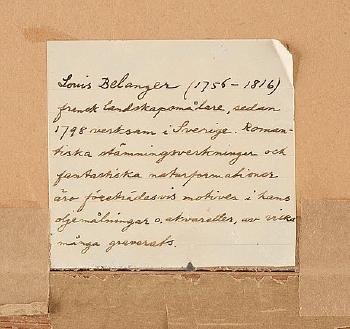 Louis Belanger (1756-1816)
fransk landskapsmålare, sedan
1798 verksam i Sverige. Roman-
tiska stämningsverkningar och
fantastiska naturformationer
äro företrädesvis motivet i hans
oljemålningar o. akvareller, av vilka
många graverats.